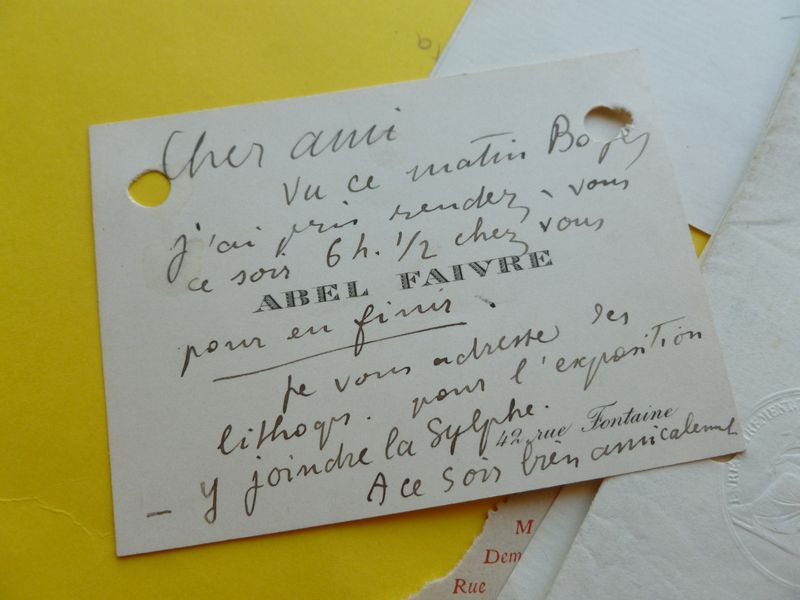 Cher ami
Vu ce matin Boyer
j'ai pris rendez-vous
ce soir 6h. 1/2 chez vous
ABEL FAIVRE
pour en finir.
Je vous adresse les
lithogs. pour l'exposition
42, rue Fontaine
- y joindre la Sylphe.
A ce soir bien amicalement
M
Dem
Rue